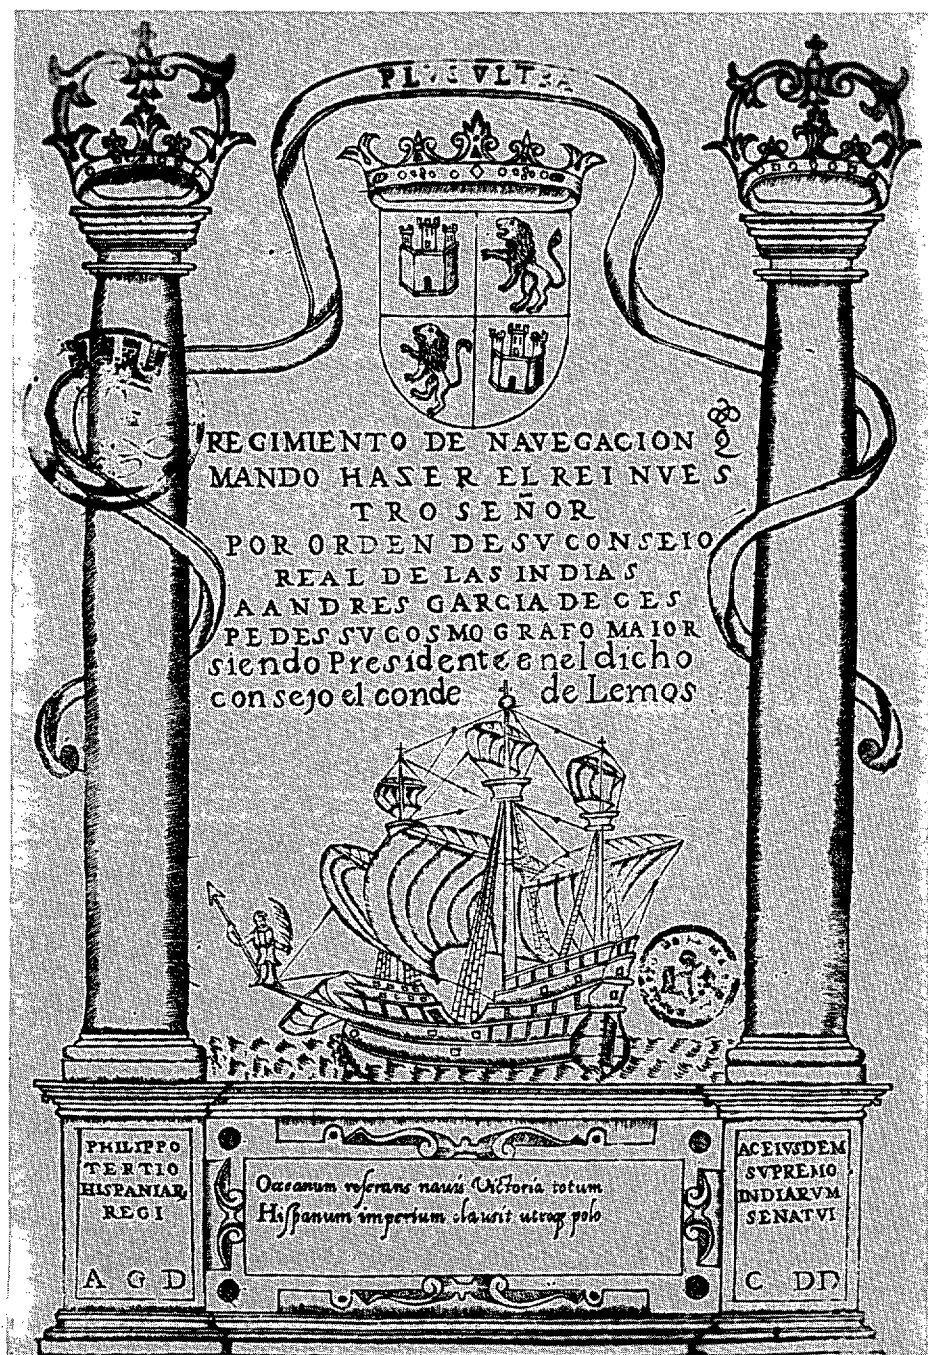 PLVS VLTRA
REGIMIENTO DE NAVEGACION
MANDO HASER EL REI NVES
TRO SEÑOR
POR ORDEN DE SV CONSEIO
REAL DE LAS INDIAS
A ANDRES GARCIA DE CES
PEDES SV COSMOGRAFO MAIOR
siendo Presidente en el dicho
consejo el conde de Lemos
PHILIPPO
TERTIO
HISPANIAR
REGI
A G D
Oceanum reserans navis Victoria totum
Hispanum imperium clausit utroq polo
AC EIVSDEM
SVPREMO
INDIARVM
SENATVI
C DD